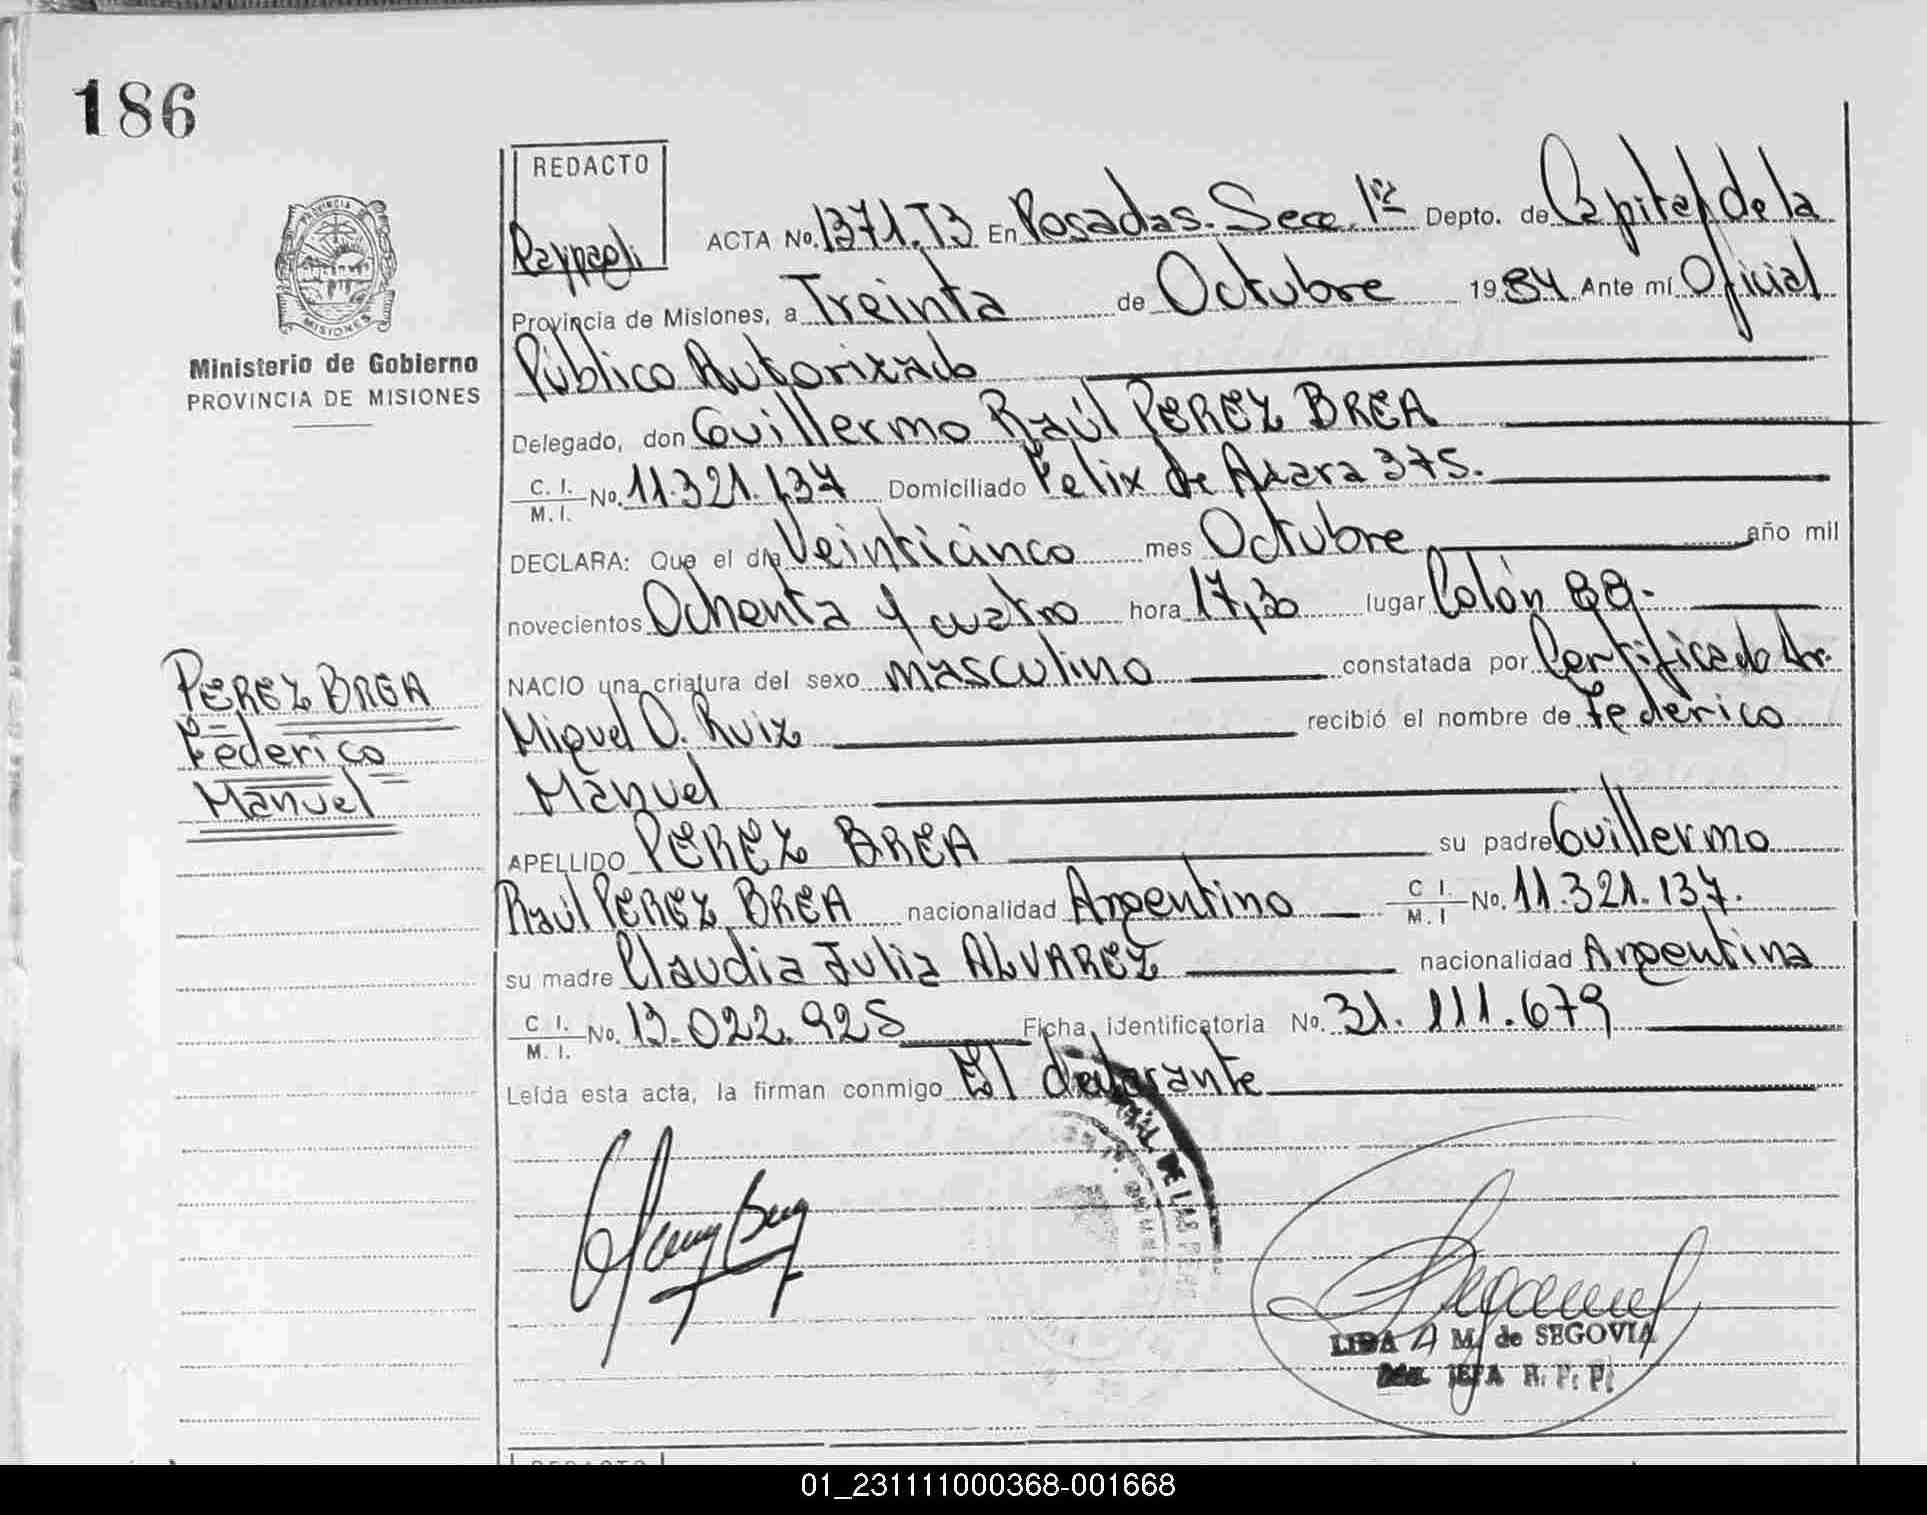 186
REDACTO
Raypaoli
ACTA No. 1371.T3 En Posadas. Secc. 1ª Depto. de Capital de la
Provincia de Misiones, a Treinta de Octubre 1984 Ante mí Oficial
Público Autorizado
Delegado, don Guillermo Raúl PEREZ BREA
C. I. M. I. No. 11.321.137 Domiciliado Felix de Azara 375.
DECLARA: Que el día Veinticinco mes Octubre año mil
novecientos Ochenta y cuatro hora 17,30 lugar Colón
NACIO una criatura del sexo masculino constatada por Certificado Dr.
Miguel O. Ruiz recibió el nombre de Federico
Manuel
APELLIDO PEREZ BREA su padre Guillermo
Raúl PEREZ BREA nacionalidad Argentino C I. M. I No. 11.321.137.
su madre Claudia Julia ALVAREZ nacionalidad Argentina
C I. M. I. No. 13.022.925 Ficha identificatoria No. 31.111.679
Leída esta acta, la firman conmigo El declarante
PROVINCIA DE
MISIONES
Ministerio de Gobierno
PROVINCIA DE MISIONES
PEREZ BREA
Federico
Manuel
DE LAS
M. de SEGOVIA
JEFA R. P. P.
REDACTO
01_231111000368-001668